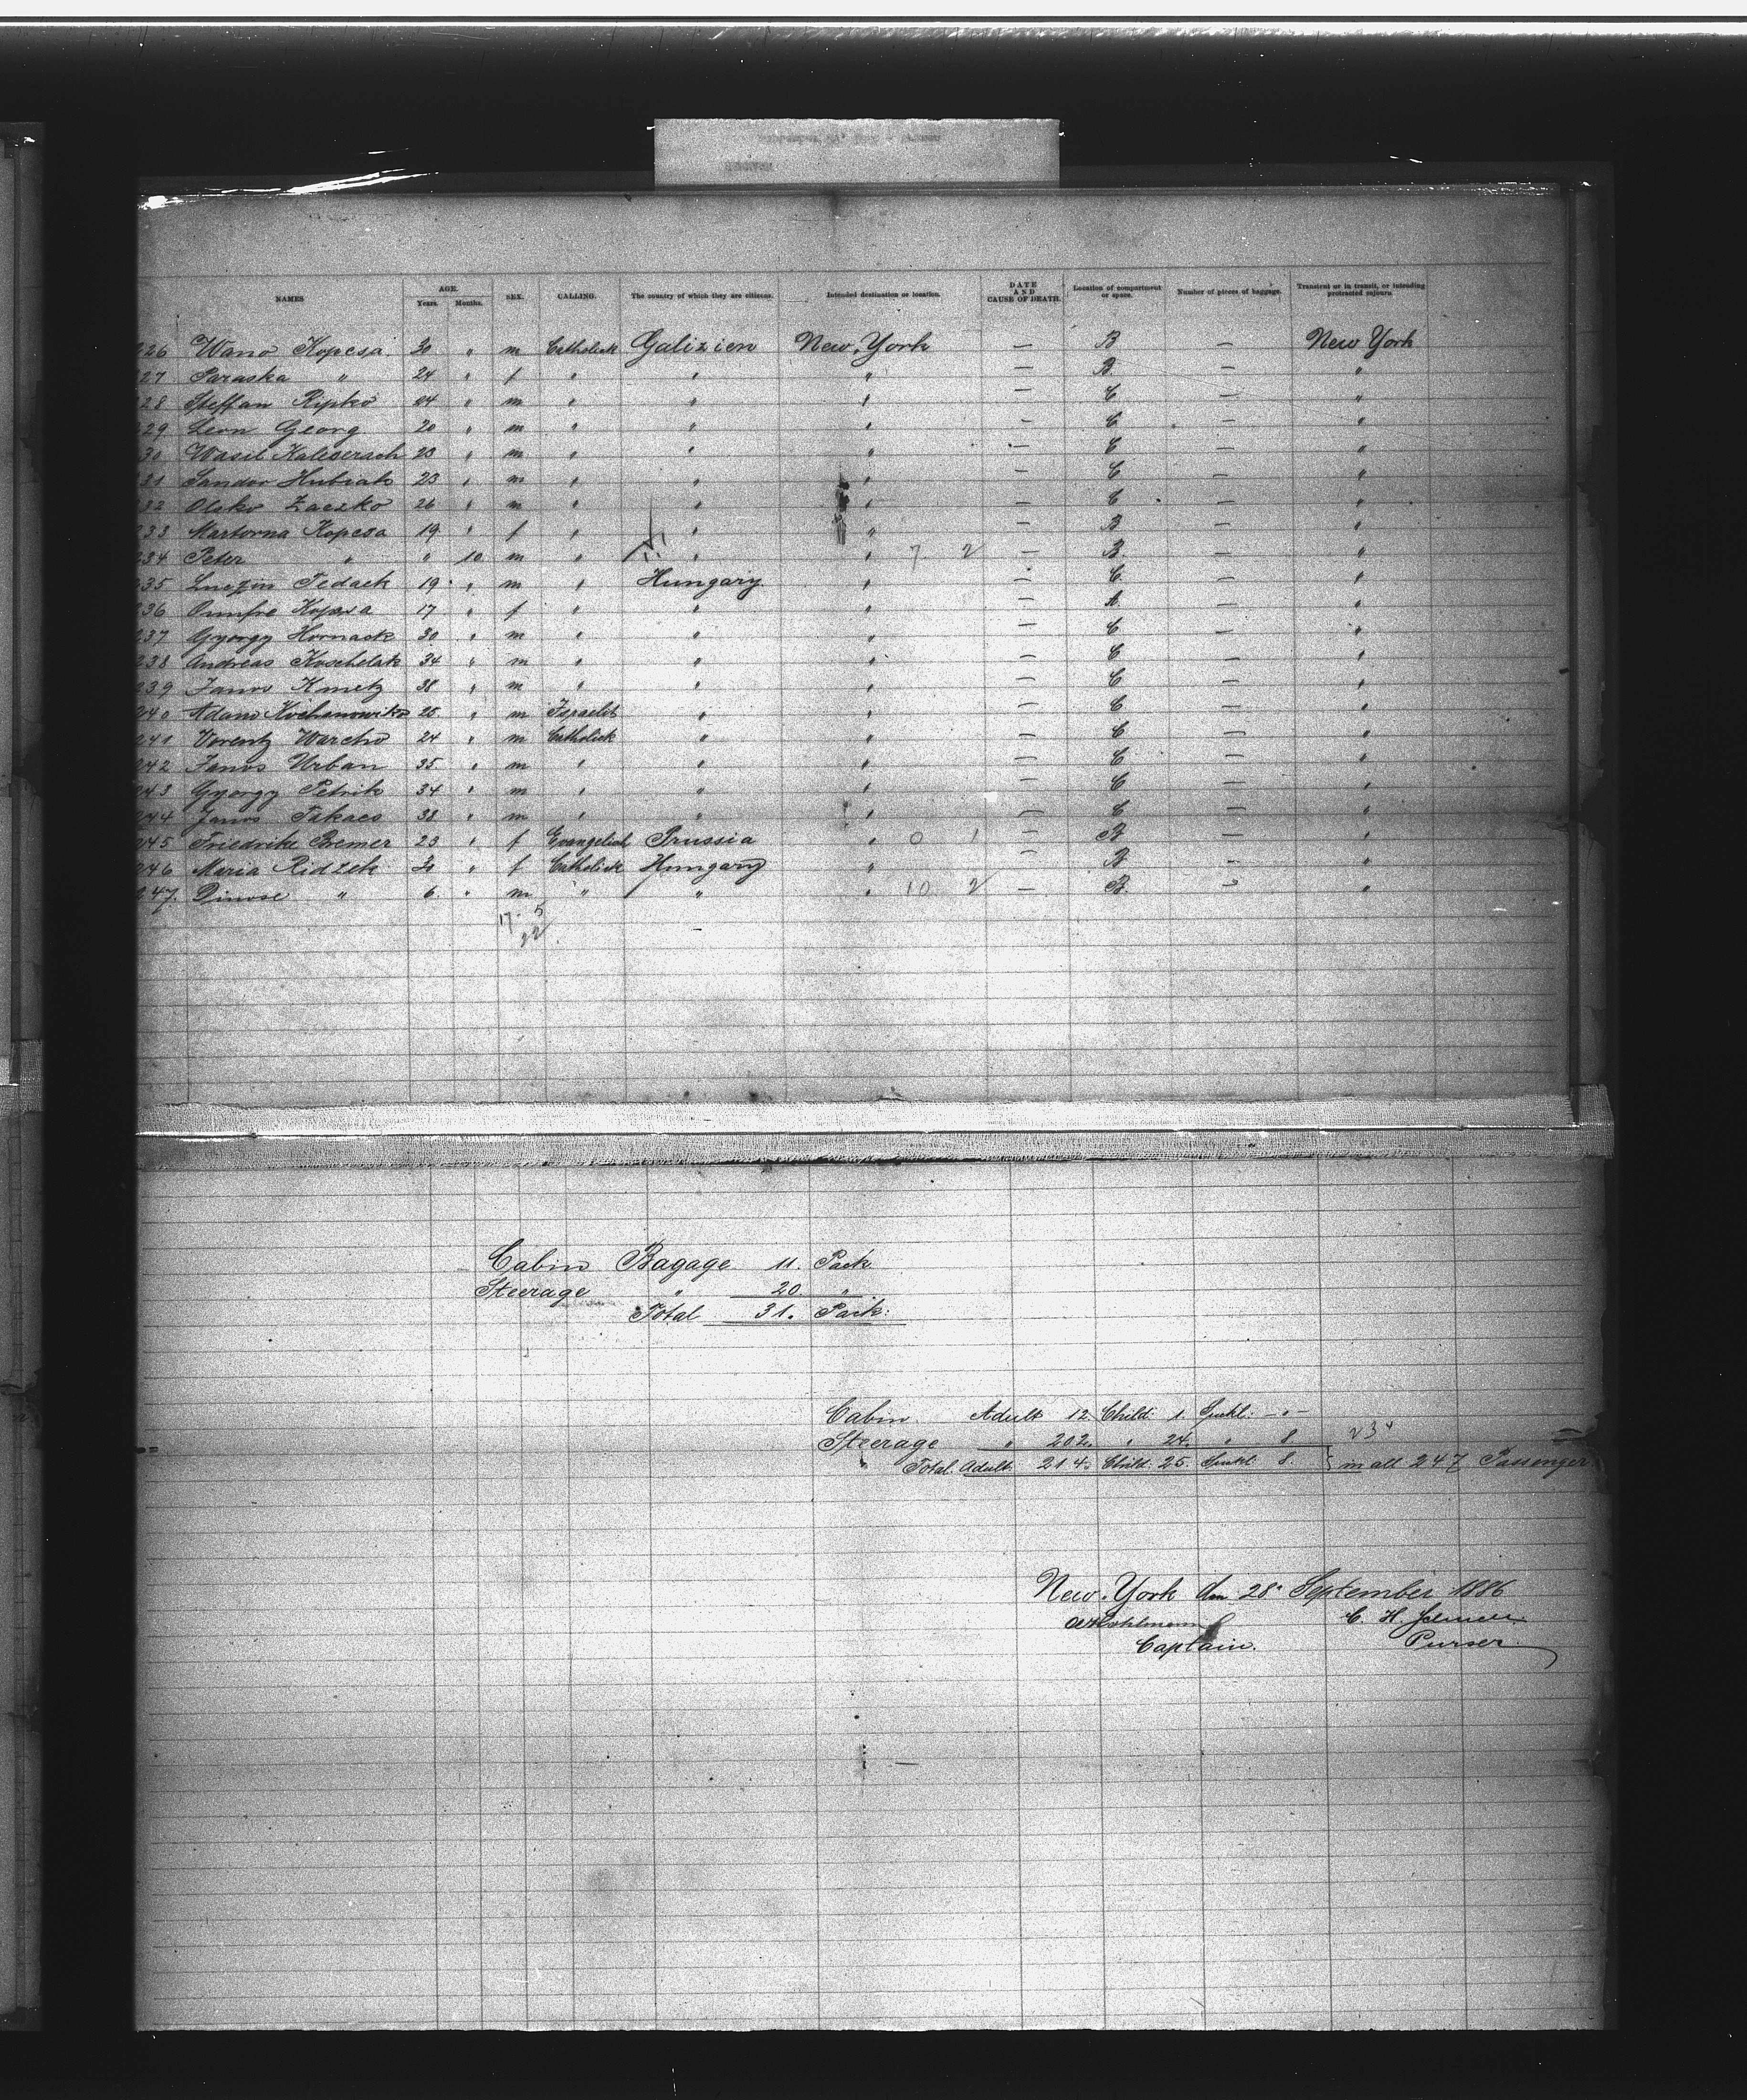 NAMES AGE. Years. Months. SEX. CALLING. The country of which they are citizens. Intended destination or location. DATE AND CAUSE OF DEATH. Location of compartment or space. Number of pieces of baggage. Transient or in transit, or intending protracted sojourn.
226 Wano Kopcsa 30 " m Catholick Galizien New-York — B — New York
227 Paraska " 24 " f " " " — B — "
228 Steffan Ripko 24 " m " " " — C — "
229 Leon Georg 20 " m " " " — C — "
230 Wasil 23 " m " " " — C — "
231 Sandor Hubiak 23 " m " " " — C — "
232 Oleko Zaczko 26 " m " " " — C — "
233 Kopcsa 19 " f " " " — B — "
234 Peter " " 10 m " " " 7 2 — B — "
235 Tedack 19 " m " Hungary " — C — "
236 Kopcsa 17 " f " " " — A — "
237 Gyorgy Hornack 30 " m " " " — C — "
238 Andreas Koschelak 34 " m " " " — C — "
239 Janos Kmetz 38 " m " " " — C — "
240 Adam Kochanowitz 25 " m Israelit " " — C — "
241 Warcho 24 " m Catholick " " — C — "
242 Janos Urban 35 " m " " " — C — "
243 Gyorgy Petrik 34 " m " " " — C — "
244 Janos Takacs 38 " m " " " — C — "
245 Friedrike Bremer 23 " f Evangelical Prussia " 0 1 — B — "
246 Maria Ridzek 30 " f Catholick Hungary " — B — "
247. " 6 " m " " " 10 2 — B — "
17 5
22
Cabin Bagage 11. Pack
Steerage " 20 "
Total 31. Pack.
Cabin Adult 12 Child: 1 — " —
Steerage " 202. " 24. " 8
Total. Adult. 214. Child. 25. 8. in all 247 Passenger
New-York den 28. September 1886
C. H.
Captain. Purser.